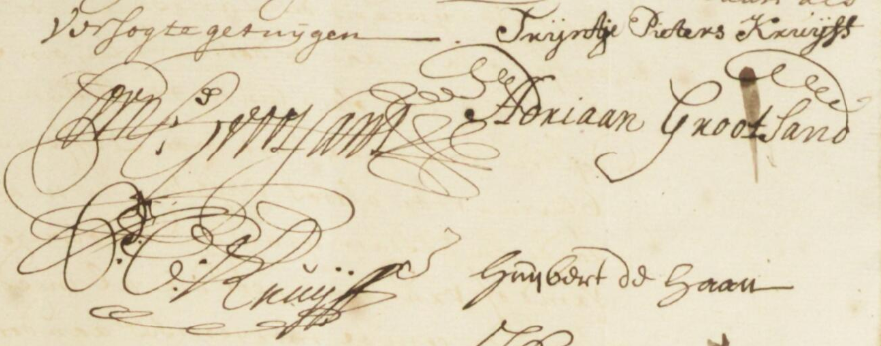 Versogte getuijgen. Trijntje Pieters Kruijff
Adriaan Grootsand
Kruijff
Huijbert de Haan